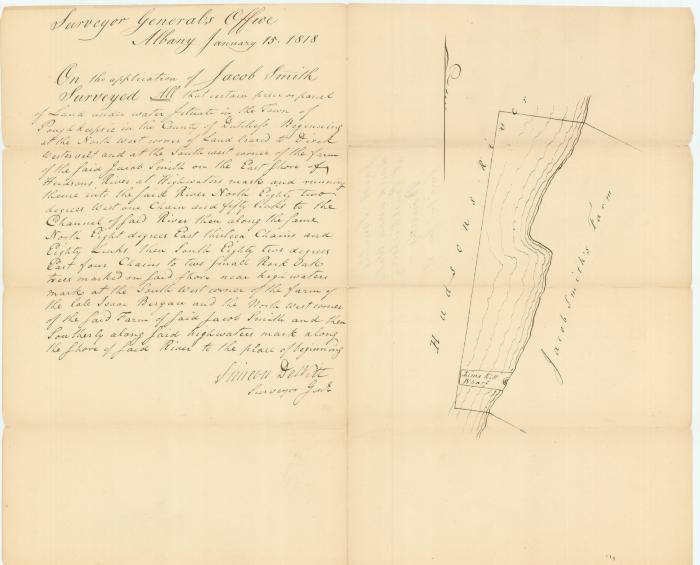 Surveyor General's Office
Albany January 15. 1818
On the application of Jacob Smith
Surveyed All that certain piece or parcel
of Land under water situate in the Town of
Poughkeepsie in the County of Dutchess Beginning
at the North West corner of Land leased to Dirck
Westervelt and at the South west corner of the farm
of the said Jacob Smith on the East Shore of
Hudsons River at Highwaters mark and running
thence into the said River North Eighty two
degrees West one Chain and fifty links to the
Channel of said River then along the same
North Eight degrees East thirteen Chains and
Eighty Links then South Eighty two degrees
East four Chains to two small Rock Oak
trees marked on said shore near high waters
mark at the South West corner of the farm of
the late Isaac Bergaw and the North West corner
of the said Farm of said Jacob Smith and then
Southerly along said highwaters mark along
the shore of said River to the place of beginning
Simeon DeWitt
Surveyor Genl
Hudsons River
Jacob Smith's Farm
Lime Kill
Wharf